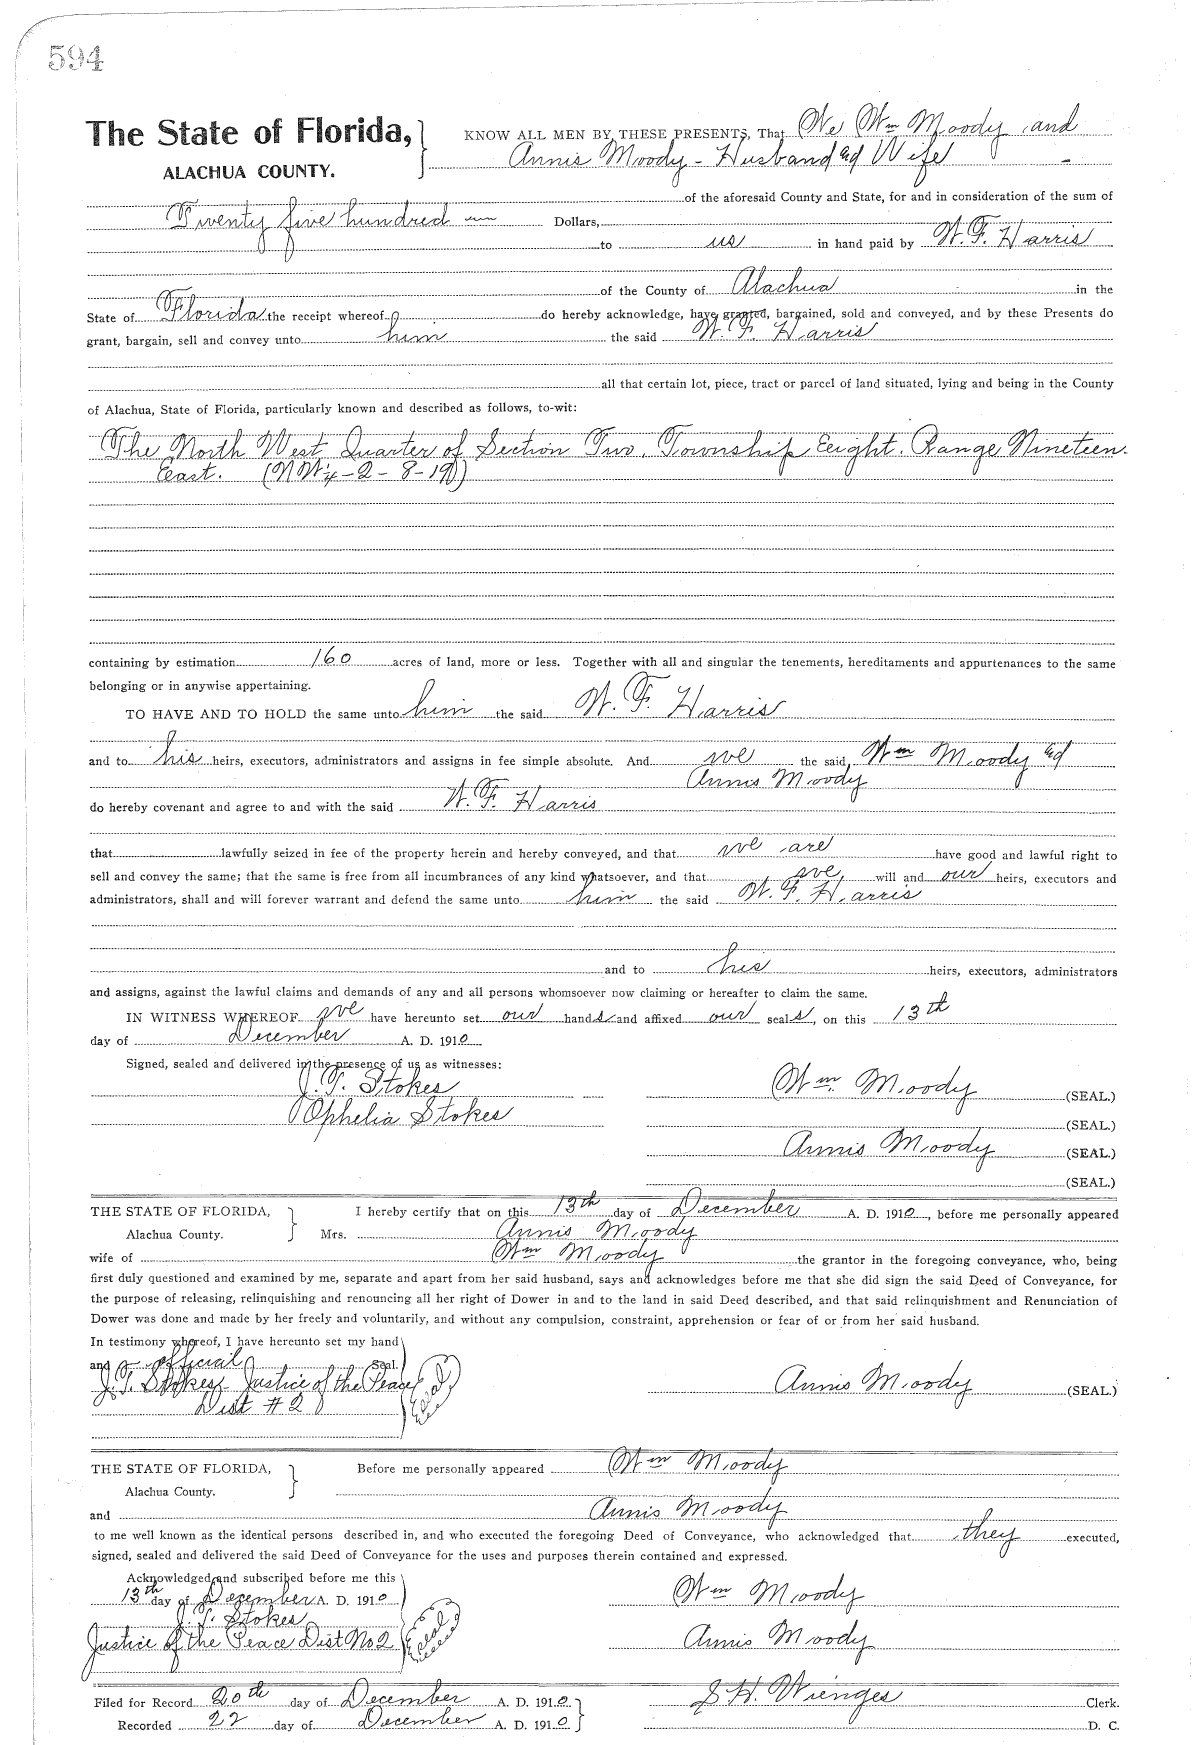 594
The State of Florida, KNOW ALL MEN BY THESE PRESENTS, That We Wm Moody and
ALACHUA COUNTY. Annis Moody - Husband and Wife -
of the aforesaid County and State, for and in consideration of the sum of
Twenty five hundred Dollars,
to us in hand paid by W. F. Harris
of the County of Alachua in the
State of Florida the receipt whereof do hereby acknowledge, have granted, bargained, sold and conveyed, and by these Presents do
grant, bargain, sell and convey unto him the said W. F. Harris
all that certain lot, piece, tract or parcel of land situated, lying and being in the County
of Alachua, State of Florida, particularly known and described as follows, to-wit:
The North West Quarter of Section Two, Township Eeight. Range Nineteen.
East. (NW¼-2-8-19)
containing by estimation 160 acres of land, more or less. Together with all and singular the tenements, hereditaments and appurtenances to the same
belonging or in anywise appertaining.
TO HAVE AND TO HOLD the same unto him the said W. F. Harris
and to his heirs, executors, administrators and assigns in fee simple absolute. And we the said Wm Moody and
Annis Moody
do hereby covenant and agree to and with the said W. F. Harris
that lawfully seized in fee of the property herein and hereby conveyed, and that we are have good and lawful right to
sell and convey the same; that the same is free from all incumbrances of any kind whatsoever, and that we will and our heirs, executors and
administrators, shall and will forever warrant and defend the same unto him the said W. F. Harris
and to his heirs, executors, administrators
and assigns, against the lawful claims and demands of any and all persons whomsoever now claiming or hereafter to claim the same.
IN WITNESS WHEREOF we have hereunto set our hands and affixed our seals, on this 13th
day of December A. D. 1910
Signed, sealed and delivered in the presence of us as witnesses:
J. T. Stokes Wm Moody (SEAL.)
Ophelia Stokes (SEAL.)
Annis Moody (SEAL.)
(SEAL.)
THE STATE OF FLORIDA, I hereby certify that on this 13th day of December A. D. 1910, before me personally appeared
Alachua County. Mrs. Annis Moody
wife of Wm Moody the grantor in the foregoing conveyance, who, being
first duly questioned and examined by me, separate and apart from her said husband, says and acknowledges before me that she did sign the said Deed of Conveyance, for
the purpose of releasing, relinquishing and renouncing all her right of Dower in and to the land in said Deed described, and that said relinquishment and Renunciation of
Dower was done and made by her freely and voluntarily, and without any compulsion, constraint, apprehension or fear of or from her said husband.
In testimony whereof, I have hereunto set my hand
and official Seal.
J. T. Stokes Justice of the Peace Seal Annis Moody (SEAL.)
Dist # 2
THE STATE OF FLORIDA, Before me personally appeared Wm Moody
Alachua County.
and Annis Moody
to me well known as the identical persons described in, and who executed the foregoing Deed of Conveyance, who acknowledged that they executed,
signed, sealed and delivered the said Deed of Conveyance for the uses and purposes therein contained and expressed.
Acknowledged and subscribed before me this
13th day of December A. D. 1910 Wm Moody
J. T. Stokes
Justice of the Peace Dist No 2 Seal Annis Moody
Filed for Record 20th day of December A. D. 1910 S. H. Wienges Clerk.
Recorded 22 day of December A. D. 1910 D. C.